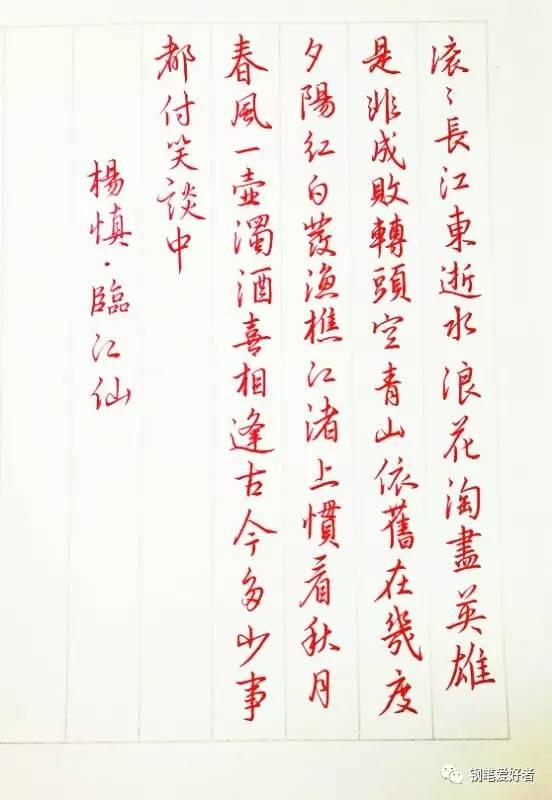 滚〻長江東逝水浪花淘盡英雄
是非成敗轉頭空青山依舊在幾度
夕陽紅白發漁樵江渚上慣看秋月
春風一壺濁酒喜相逢古今多少事
都付笑談中
楊慎·臨江仙
钢笔爱好者